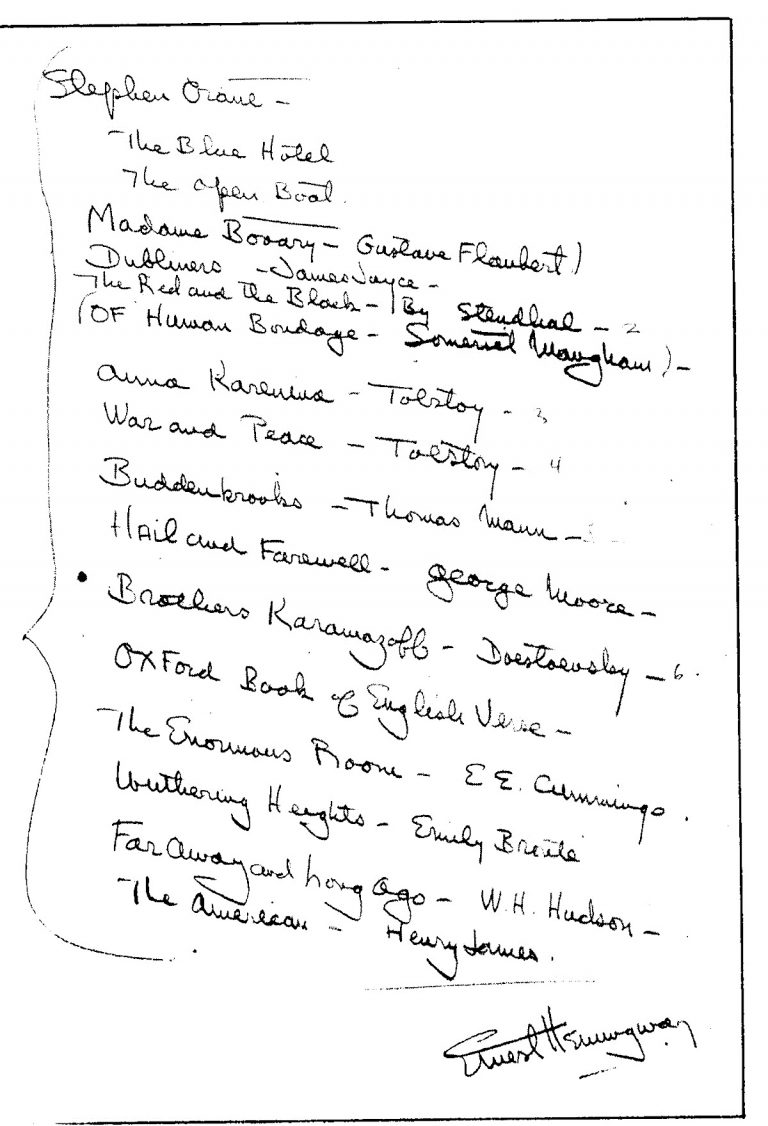 Stephen Crane -
The Blue Hotel
The Open Boat.
Madame Bovary - Gustave Flaubert)
Dubliners - James Joyce -
The Red and the Black - By Stendhal - 2
(OF Human Bondage - Somerset Maugham) -
Anna Karenina - Tolstoy - 3
War and Peace - Tolstoy - 4
Buddenbrooks - Thomas Mann - 5 -
Hail and Farewell - George Moore -
• Brothers Karamazoff - Doestoevsky - 6.
OXFord Book of English Verse -
The Enormous Room - E E. Cummings.
Wuthering Heights - Emily Bronte
Far Away and Long Ago - W.H. Hudson -
The American - Henry James.
Ernest Hemingway